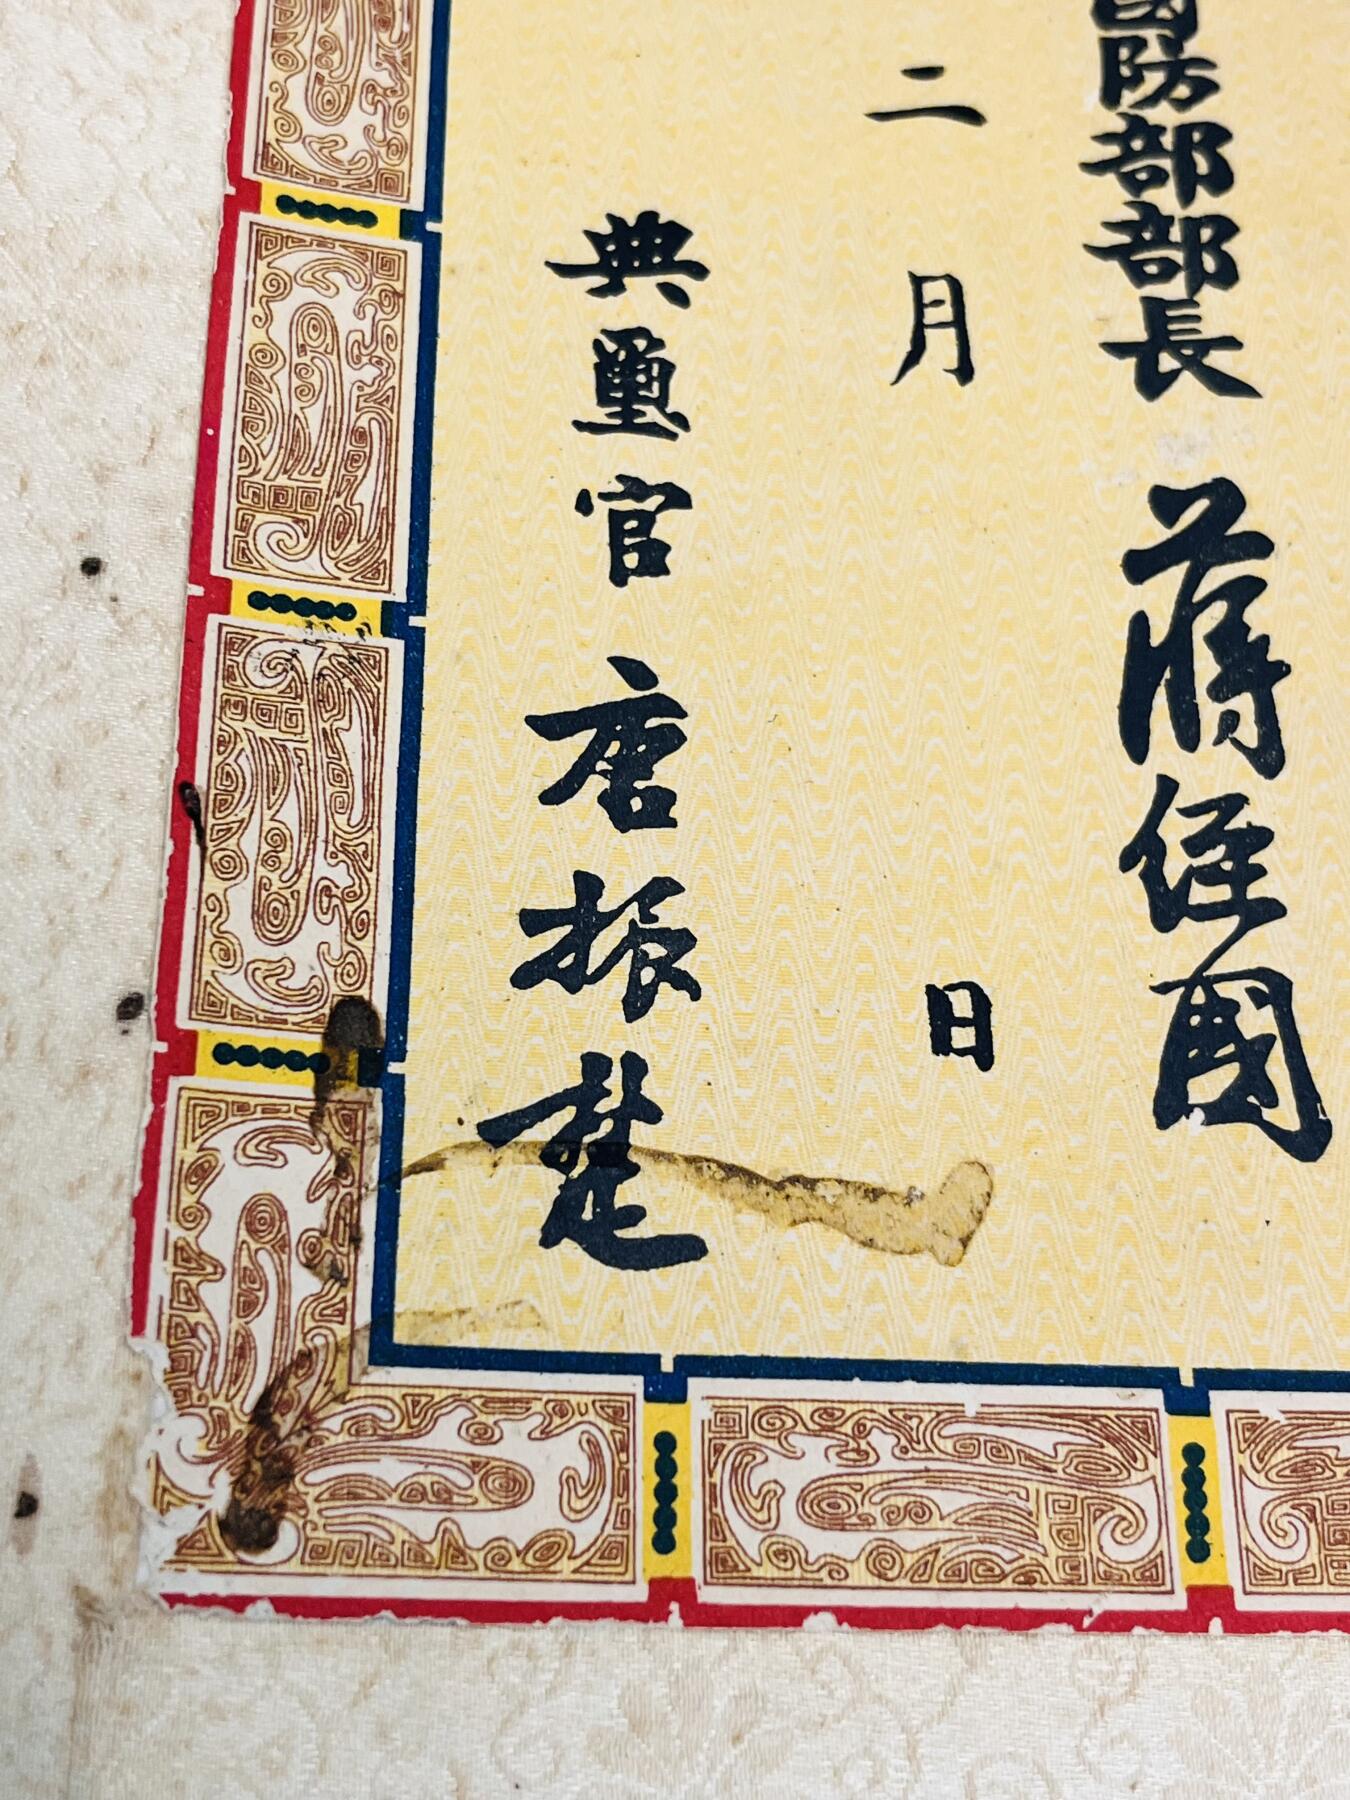 國防部部長 蔣經國
二月 日
典璽官 唐振楚